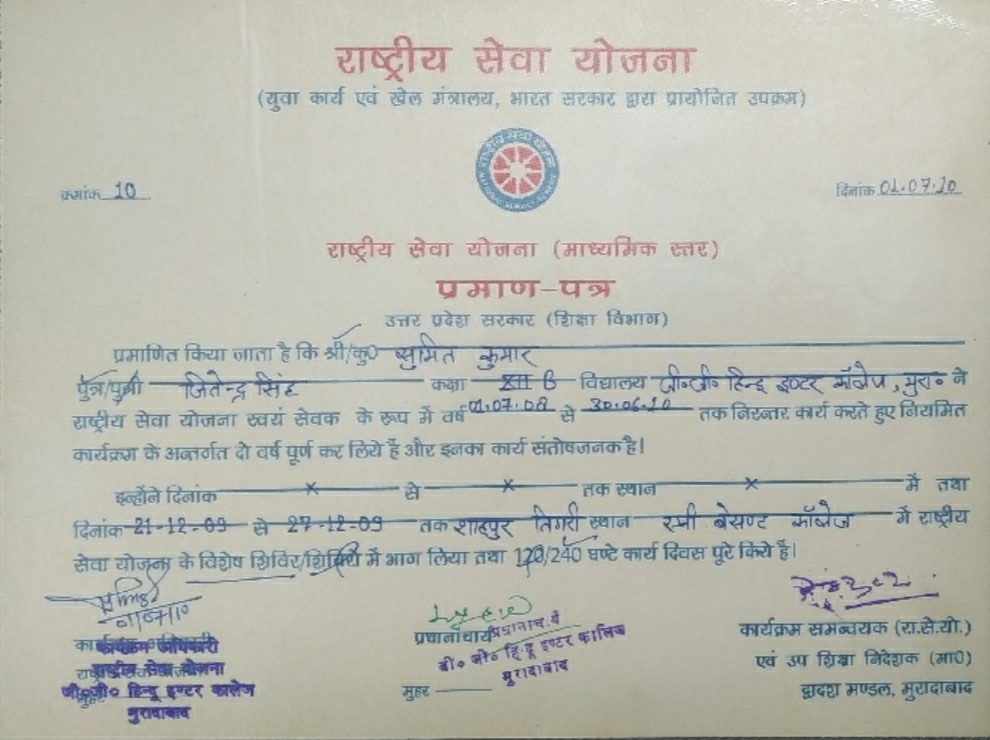 राष्ट्रीय सेवा योजना
(युवा कार्य एवं खेल मंत्रालय, भारत सरकार द्वारा प्रायोजित उपक्रम)
क्रमांक 10
दिनांक 01.07.10
राष्ट्रीय सेवा योजना (माध्यमिक स्तर)
प्रमाण-पत्र
उत्तर प्रदेश सरकार (शिक्षा विभाग)
प्रमाणित किया जाता है कि श्री/कु० सुमित कुमार
पुत्र/पुत्री जितेन्द्र सिंह कक्षा XII B विद्यालय जी०जी० हिन्दू इण्टर कॉलेज, मुरा० ने
राष्ट्रीय सेवा योजना स्वयं सेवक के रूप में वर्ष 01.07.08 से 30.06.10 तक निरन्तर कार्य करते हुए नियमित
कार्यक्रम के अन्तर्गत दो वर्ष पूर्ण कर लिये है और इनका कार्य संतोषजनक है।
इन्होंने दिनांक × से × तक स्थान × में तथा
दिनांक 21-12-09 से 27-12-09 तक शाहपुर तिगरी स्थान एनी बेसण्ट कॉलेज में राष्ट्रीय
सेवा योजना के विशेष शिविर/शिविरों में भाग लिया तथा 120/240 घण्टे कार्य दिवस पूरे किये है।
01/07/10
कार्यक्रम अधिकारी
राष्ट्रीय सेवा योजना
जी०जी० हिन्दू इण्टर कालेज
मुरादाबाद
प्रधानाचार्य
प्रधानाचार्य
जी० जी० हिन्दू इण्टर कालिज
मुरादाबाद
मुहर
कार्यक्रम समन्वयक (रा.से.यो.)
एवं उप शिक्षा निदेशक (मा०)
द्वादश मण्डल, मुरादाबाद